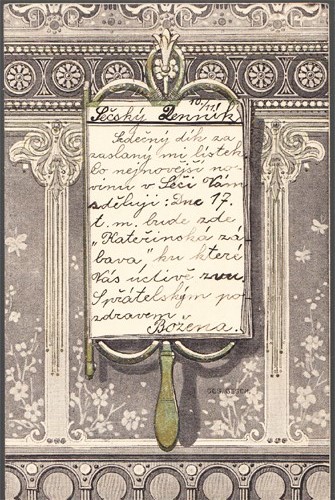 10/11.
Sečský Denník
Srdečný dík za
zaslaný mi lístek.
Co nejnovější no-
vinu v Seči Vám
sděluji: Dne 17.
t. m. bude zde
„Kateřinská zá-
bava" ku které
Vás uctivě zvu.
S přátelským po-
zdravem
Božena.